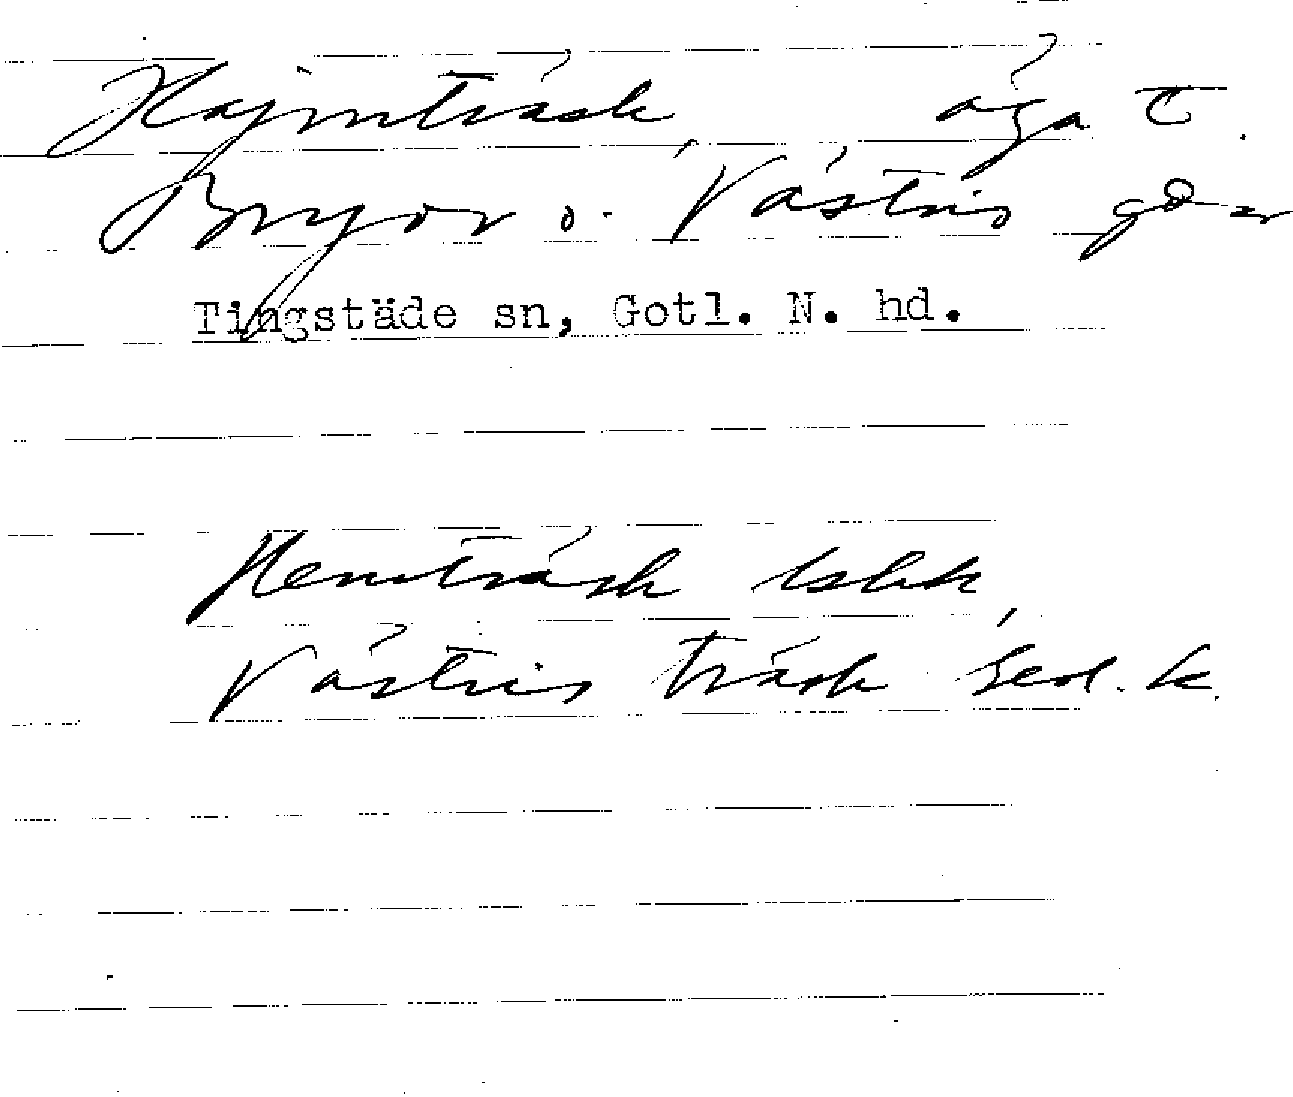 Hajmträsk, äga t.
Bryor o. Västris gdr
Tingstäde sn, Gotl. N. hd.
Hemträsk lskk,
Västris träsk Ged. k.